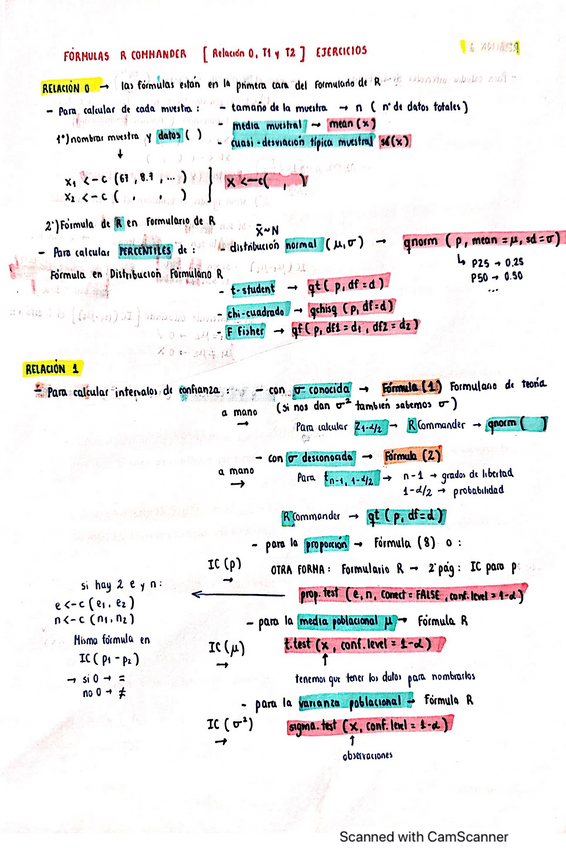 FÓRMULAS R COMMANDER [ Relación 0, T1 y T2 ] EJERCICIOS
RELACIÓN 0 → las fórmulas están en la primera cara del formulario de R
- Para calcular de cada muestra : - tamaño de la muestra → n ( nº de datos totales )
1º) nombrar muestra y datos ( ) - media muestral → mean (x)
↓ - cuasi-desviación típica muestral sd(x)
x1 <-c (67, 8.9, ...) } x <-c( , )
x2 <-c ( , , )
2º) Fórmula de R en Formulario de R
x̄~N
- Para calcular PERCENTILES de : - distribución normal (μ,σ) → qnorm ( p, mean = μ, sd = σ)
Fórmula en Distribución Formulario R ↳ P25 → 0.25
P50 → 0.50
...
- t-student → qt ( p, df = d )
- chi-cuadrado → qchisq ( p, df = d )
- F Fisher → qf ( p, df1 = d1 , df2 = d2 )
RELACIÓN 1
- Para calcular intervalos de confianza : - con σ conocida → Fórmula (1) Formulario de teoría
a mano → (si nos dan σ² también sabemos σ )
Para calcular z1-α/2 → R Commander → qnorm ( )
- con σ desconocida → Fórmula (2)
a mano → Para tn-1, 1-α/2 → n-1 → grados de libertad
1-α/2 → probabilidad
R Commander → qt ( p, df=d )
- para la proporción → Fórmula (8) o :
IC (p) → OTRA FORMA : Formulario R → 2ª pág : IC para p:
si hay 2 e y n : ← prop.test ( e, n, correct = FALSE , conf.level = 1-α )
e <-c ( e1, e2 )
n <-c ( n1, n2 )
- para la media poblacional μ → Fórmula R
Misma fórmula en
IC (μ) → t.test ( x, conf.level = 1-α )
IC ( p1 - p2 )
↑
→ si 0 → =
tenemos que tener los datos para nombrarlos
no 0 → ≠
- para la varianza poblacional → Fórmula R
IC (σ²) → sigma.test ( x, conf.level = 1-α )
↑
observaciones
Scanned with CamScanner